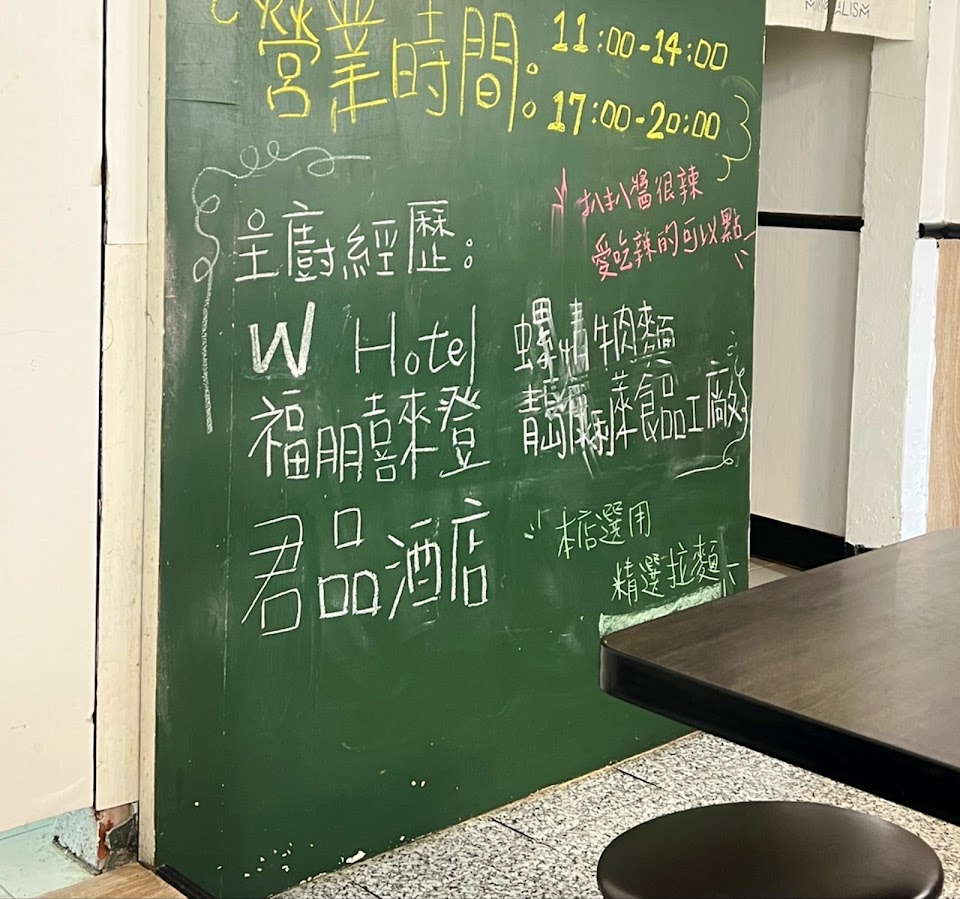 營業時間：11:00-14:00
17:00-20:00
扒扒醬很辣
愛吃辣的可以點
主廚經歷：
W Hotel
福朋喜來登
君品酒店
牛肉麵
食品工廠
本店選用
精選拉麵